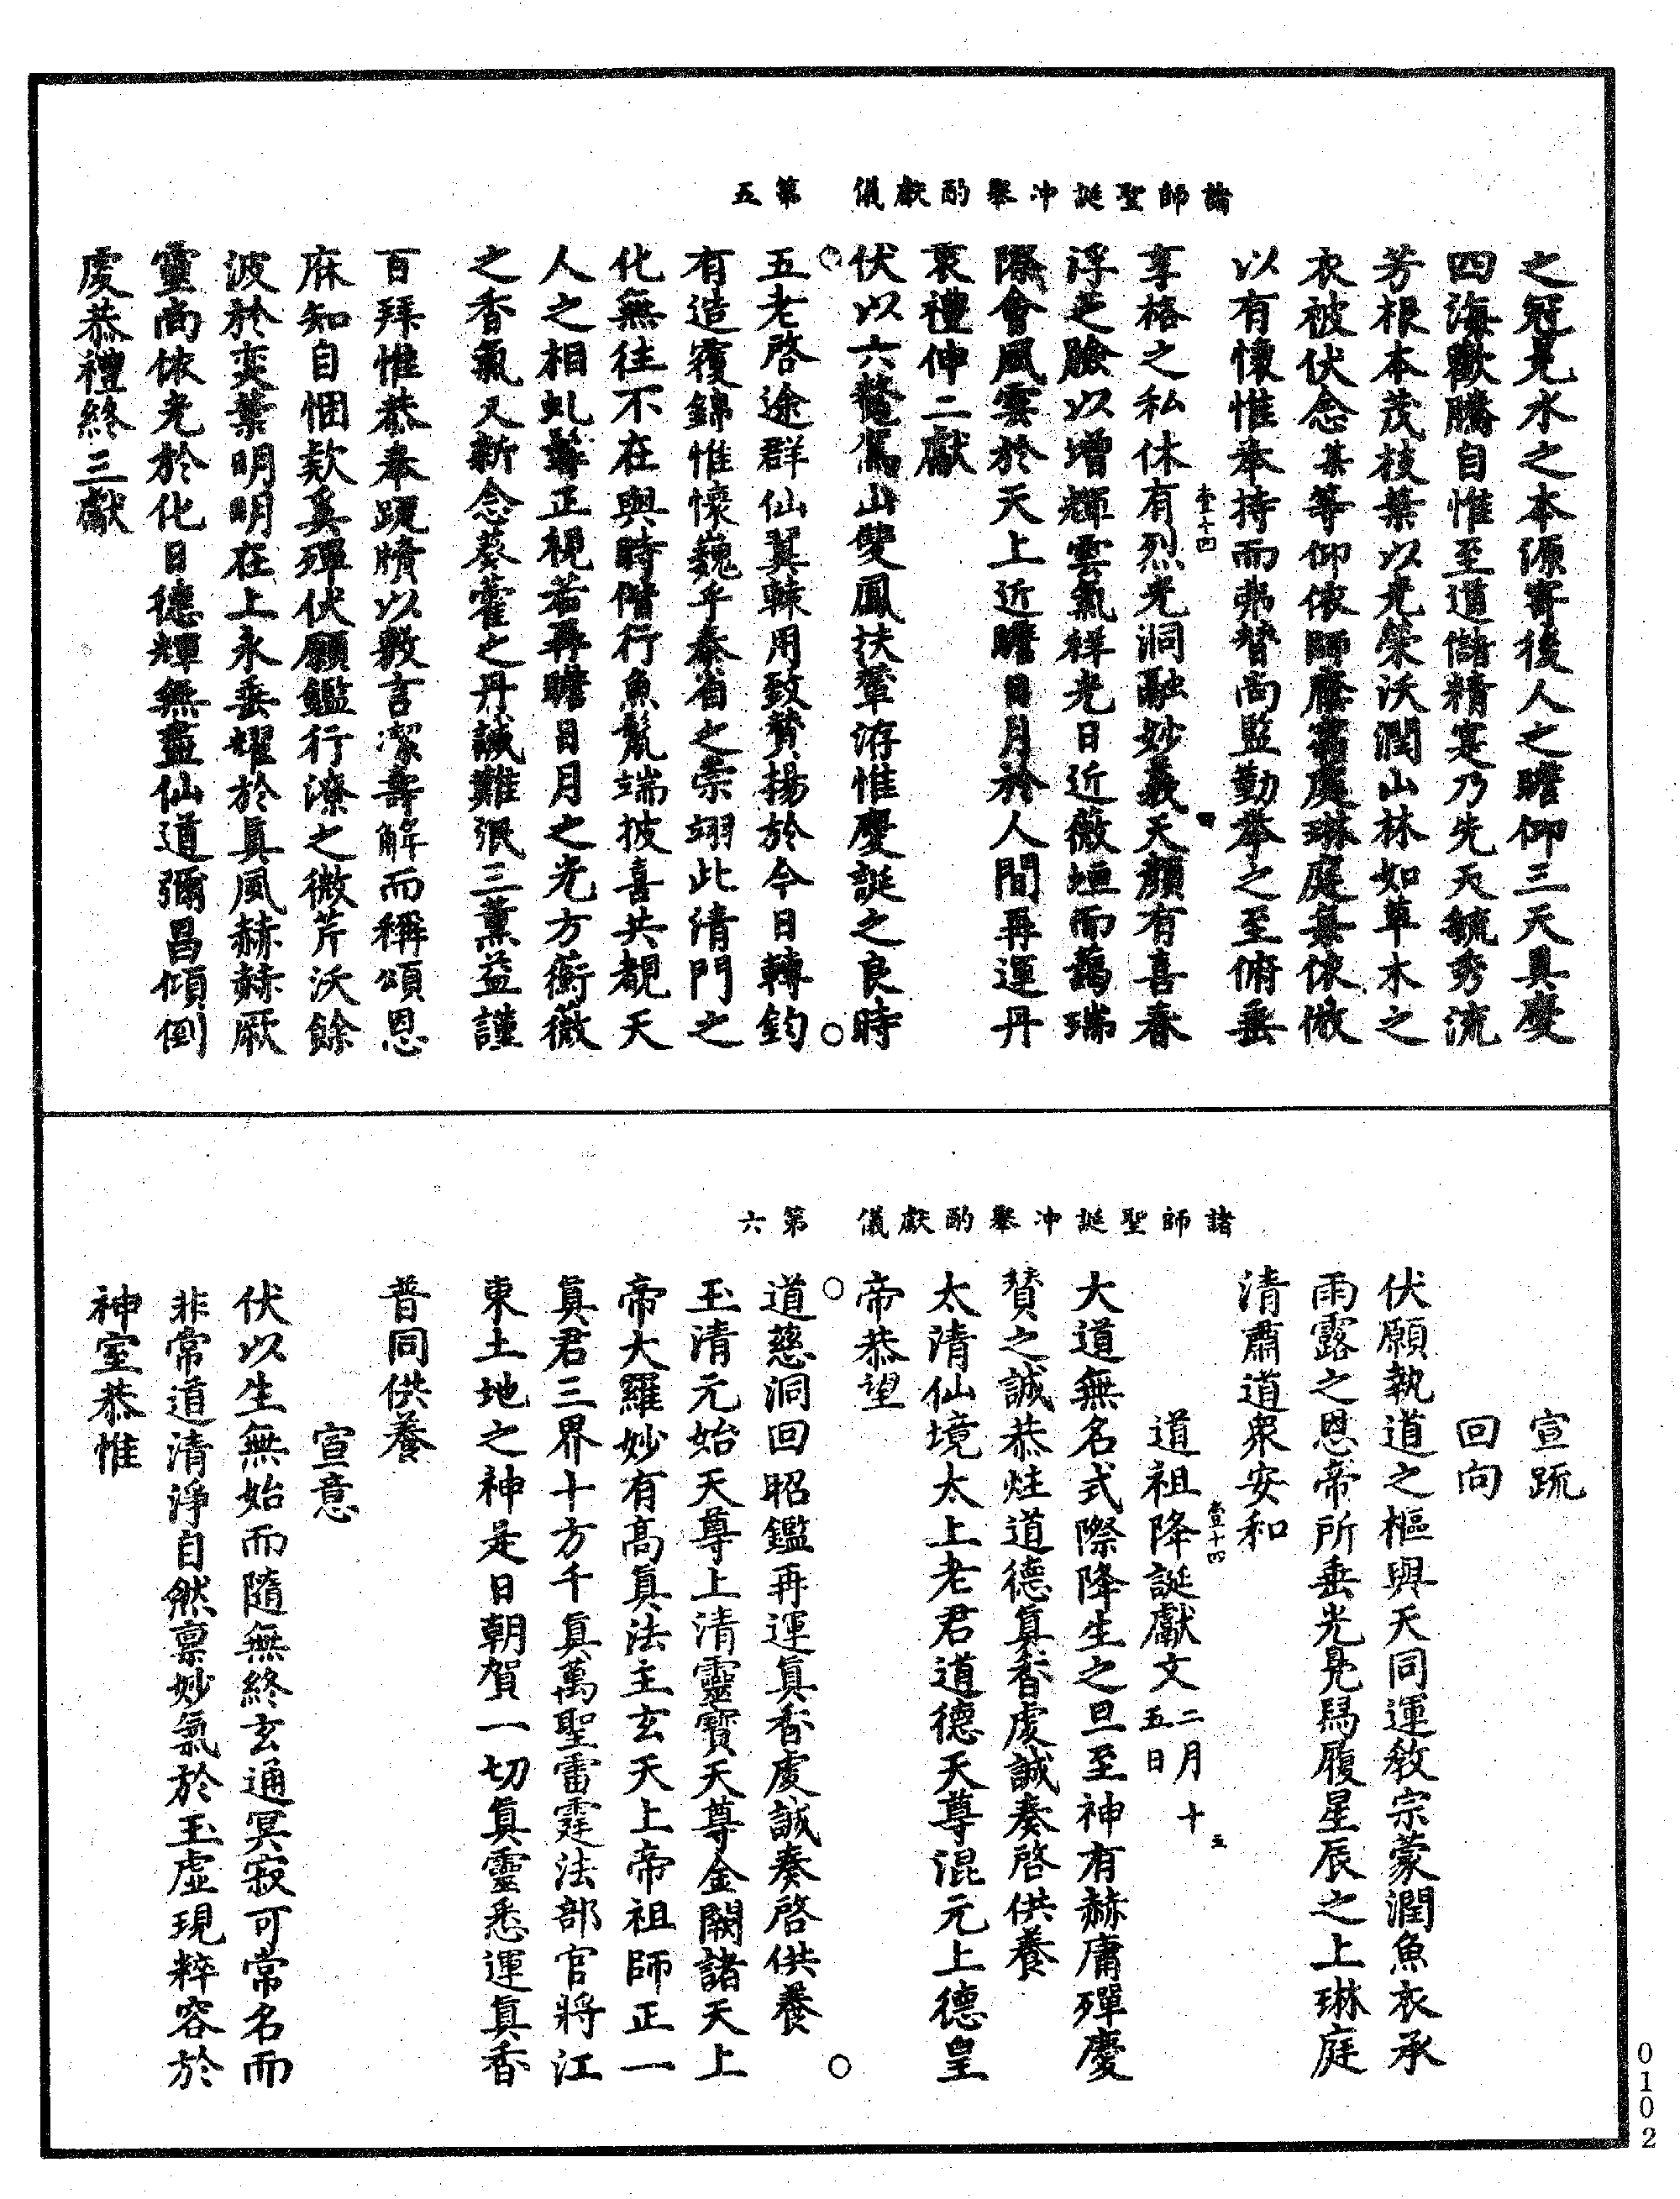 諸師聖誕沖舉酌獻儀　第五
之冠冕水之本源寄後人之瞻仰三天具慶
四海歡騰自惟至道儲精寔乃先天毓秀流
芳根本茂枝葉以光榮沃潤山林如草木之
衣被伏念某等仰依師廕霱處琳庭無依倣
以有懷惟奉持而弗替尚監勤拳之至俯垂
享格之私休有烈光洞融妙義天顏有喜春
浮芝臉以增輝雲氣祥光日近薇垣而藹瑞
際會風雲於天上近瞻日月於人間再運丹
衷禮伸二獻
伏以六鰲駕山雙鳳扶輦洊惟慶誕之良時
五老啓途群仙翼輅用致贊揚於今日轉鈞
有造覆錦惟懷巍乎泰省之崇翊此清門之
化無往不在與時偕行魚鬣端披喜共覩天
人之相虬髯正視若再瞻日月之光方銜薇
之香氣又新念葵藿之丹誠難泯三薰益謹
百拜惟恭奉琖牘以敷言潔壽觶而稱頌恩
庥知自悃欵奚殫伏願鑑行潦之微芹沃餘
波於奕葉明明在上永垂耀於眞風赫赫厥
靈尚依光於化日德輝無盡仙道彌昌傾倒
虔恭禮終三獻
諸師聖誕沖舉酌獻儀　第六
宣疏
回向
伏願執道之樞與天同運敎宗蒙潤魚衣承
雨露之恩帝所垂光鳧舄履星辰之上琳庭
清肅道衆安和
道祖降誕獻文二月十五日
大道無名式際降生之旦至神有赫庸殫慶
贊之誠恭炷道德眞香虔誠奏啓供養
太清仙境太上老君道德天尊混元上德皇
帝恭望
道慈洞回昭鑑再運眞香虔誠奏啓供養
玉清元始天尊上清靈寶天尊金闕諸天上
帝大羅妙有高眞法主玄天上帝祖師正一
眞君三界十方千眞萬聖雷霆法部官將江
東土地之神是日朝賀一切眞靈悉運眞香
普同供養
宣意
伏以生無始而隨無終玄通冥寂可常名而
非常道清淨自然禀妙氣於玉虛現粹容於
神室恭惟
0102